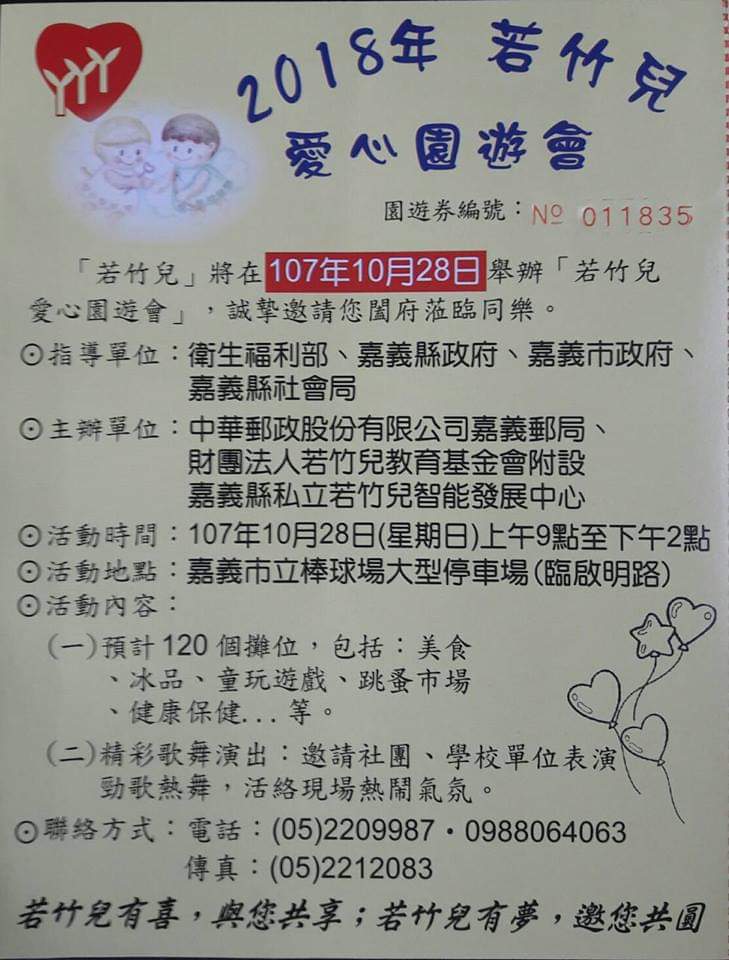 2018年 若竹兒
愛心園遊會
園遊券編號：№ 011835
「若竹兒」將在107年10月28日舉辦「若竹兒
愛心園遊會」，誠摯邀請您闔府蒞臨同樂。
⊙指導單位：衛生福利部、嘉義縣政府、嘉義市政府、
嘉義縣社會局
⊙主辦單位：中華郵政股份有限公司嘉義郵局、
財團法人若竹兒教育基金會附設
嘉義縣私立若竹兒智能發展中心
⊙活動時間：107年10月28日(星期日)上午9點至下午2點
⊙活動地點：嘉義市立棒球場大型停車場(臨啟明路)
⊙活動內容：
(一)預計120個攤位，包括：美食
、冰品、童玩遊戲、跳蚤市場
、健康保健...等。
(二)精彩歌舞演出：邀請社團、學校單位表演
勁歌熱舞，活絡現場熱鬧氣氛。
⊙聯絡方式：電話：(05)2209987・0988064063
傳真：(05)2212083
若竹兒有喜，與您共享；若竹兒有夢，邀您共圓